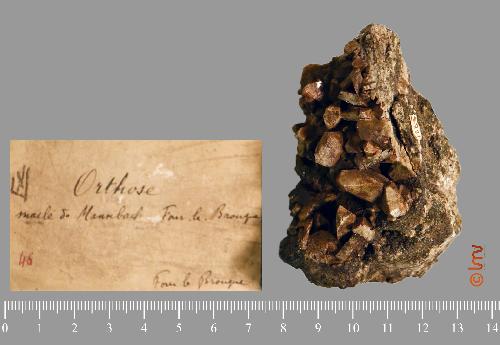 Orthose
macle de Mannebach Four la Brouque
46
Four la Brouque
0 1 2 3 4 5 6 7 8 9 10 11 12 13 14